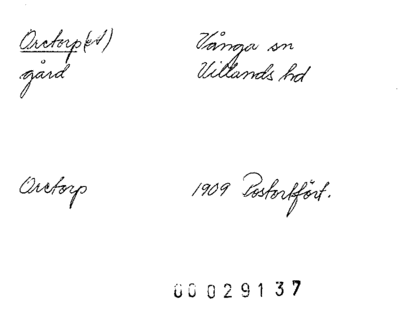 Orctorp(et) Vånga sn
gård Villands hd
Orctorp 1909 Postortfört.
00029137